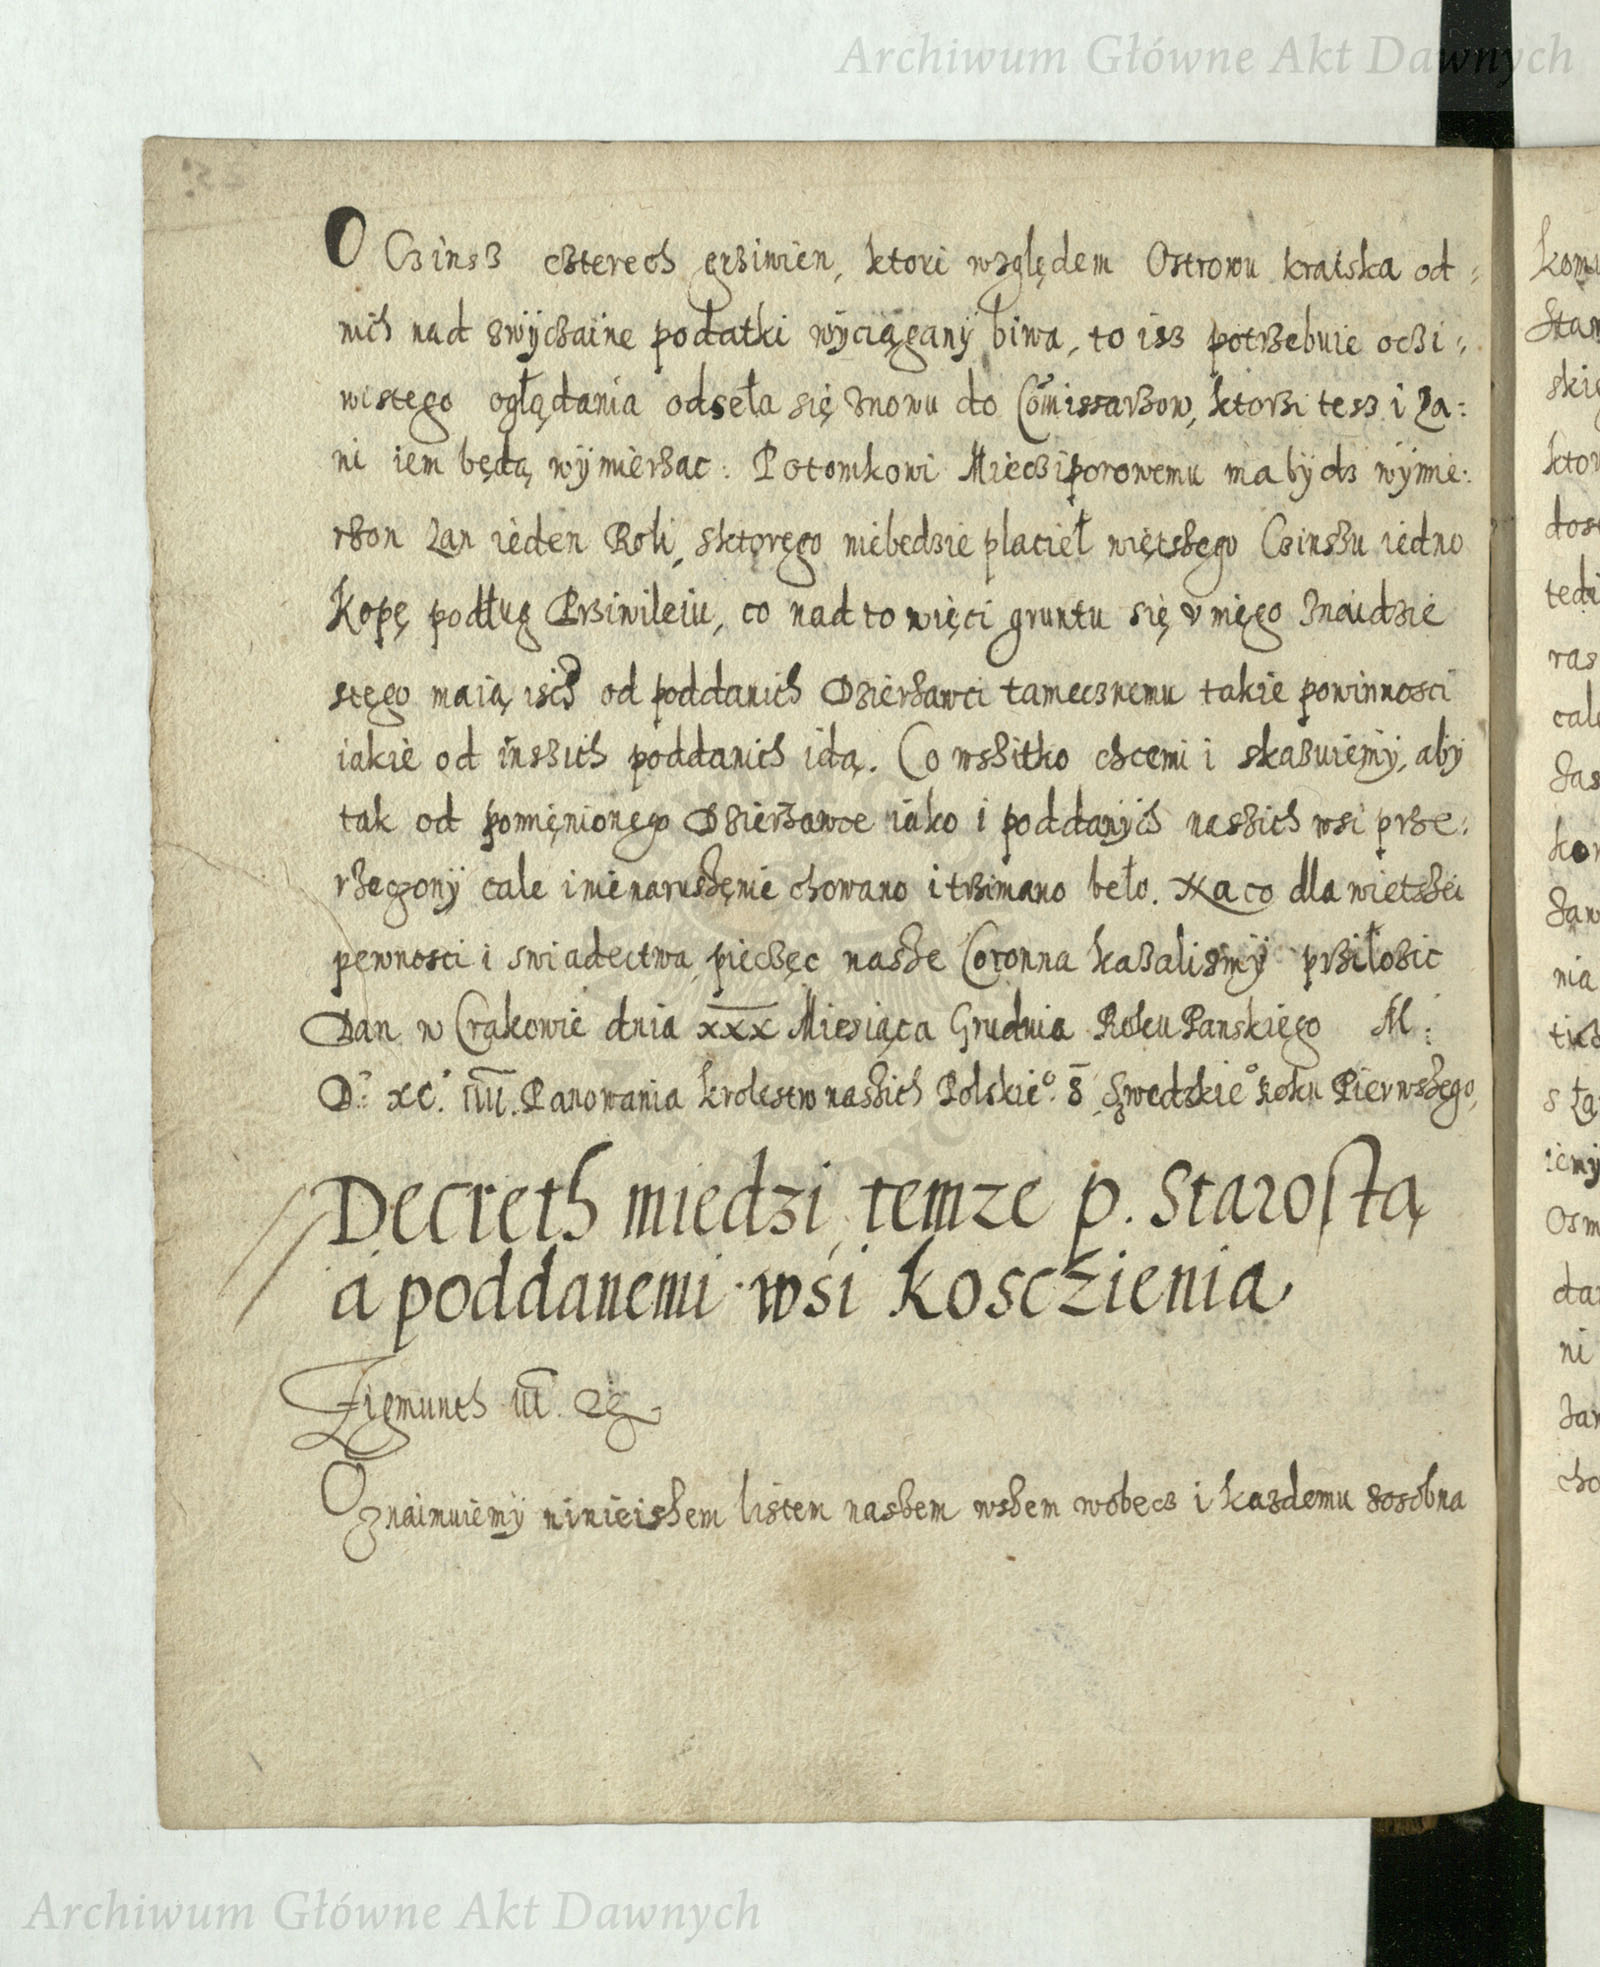 Archiwum Główne Akt Dawnych
O Czinsz czterech grziwien, ktori wzglẹdem Ostrowu kraiska od:
nich nad zwÿczaine podatki wÿciąganÿ biwa, to isz potrzebuie oczi:
wistego oglądania odseła się znowu do Comissarzow, ktorzi tesz i Ła:
ni iem będą wÿmierzac: Potomkowi Mieczÿporowemu ma bÿdz wÿmie:
rzon Łan ieden Roli, sktoręgo niebedzie placieł więtszego Czinszu iedno
Kopę podług Prziwileiu, co nad to więci gruntu się v nięgo znaidzie
stęgo maią isch od poddanich Dzierzawci tamecznemu takie powinnosci
iakie od inszich poddanich idą. Co wszitko chcemi i skazuiemÿ, abÿ
tak od pomięnionego Dzierzawce iako i poddanÿch naszich wsi prze:
rzeczonÿ cale i nienaruszęnie chowano i trzimano beło. Na co dla wietszei
pewnosci i swiadectwa pieczęc nasze Coronna kazalismÿ prziłozic
Dan w Crakowie dnia xxx Miesiąca Grudnia Roku Panskięgo M:
D: xc. iiii. Panowania krolestw naszich Polskie° 8 Szwedzkie° Roku Pierwszęgo,
Decreth miedzi temze p. Starostą
a poddanemi wsi kosczienia
Zigmunth iii. &c
Oznaimuiemÿ ninieiszem listem naszem wszem wobecz i kazdemu zosobna
Archiwum Główne Akt Dawnych